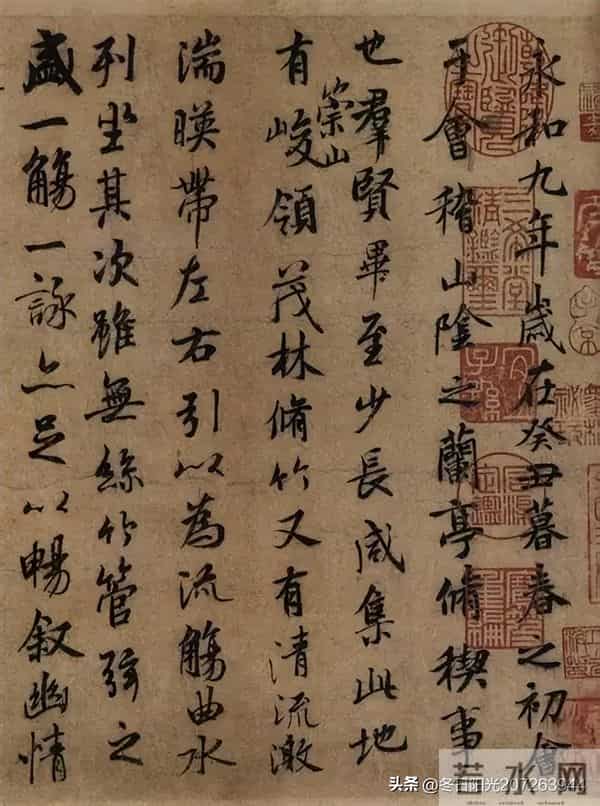 永和九年歲在癸丑暮春之初會
于會稽山陰之蘭亭脩稧事
也羣賢畢至少長咸集此地
有崇山峻領茂林脩竹又有清流激
湍暎帶左右引以為流觴曲水
列坐其次雖無絲竹管弦之
盛一觴一詠亦足以暢叙幽情
三希堂精鑑璽
宜子孫
若水网
头条 @冬日阳光207263944